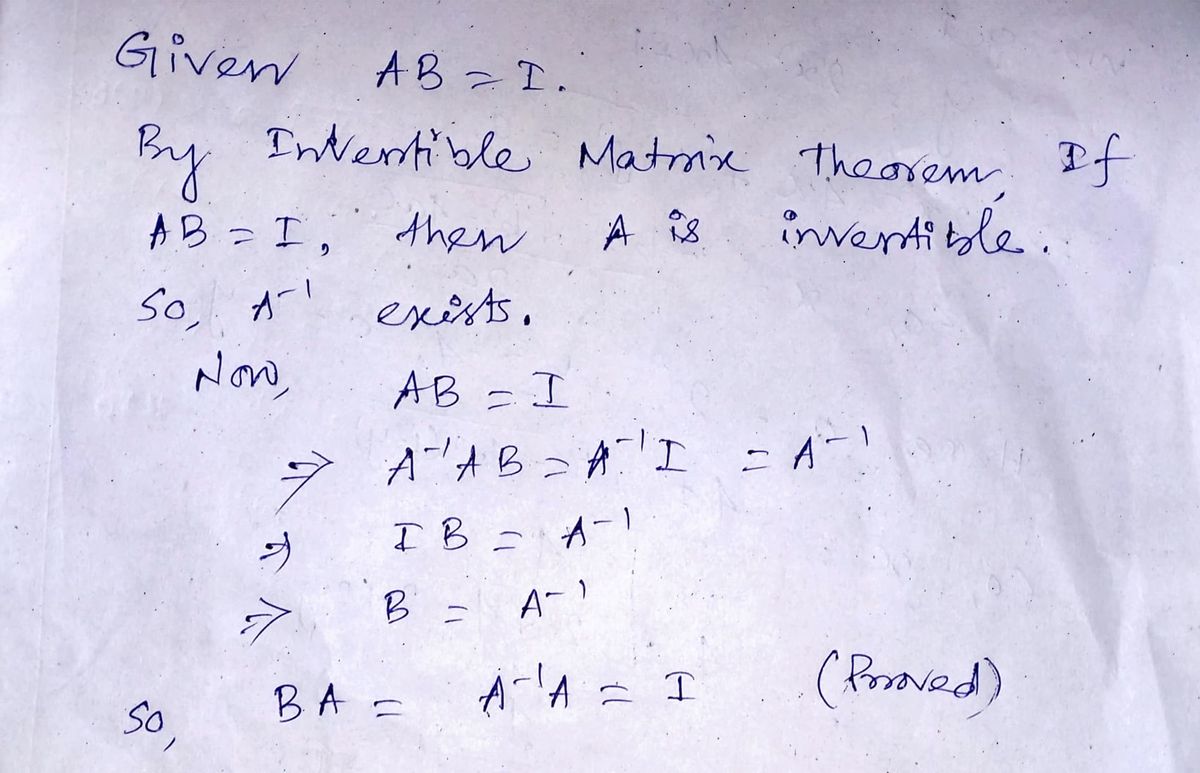 Given AB = I.
By Invertible Matrix Theorem, If
AB = I, then A is invertible.
So, A⁻¹ exists.
Now, AB = I
⇒ A⁻¹AB = A⁻¹I = A⁻¹
⇒ IB = A⁻¹
⇒ B = A⁻¹
So, BA = A⁻¹A = I (Proved)